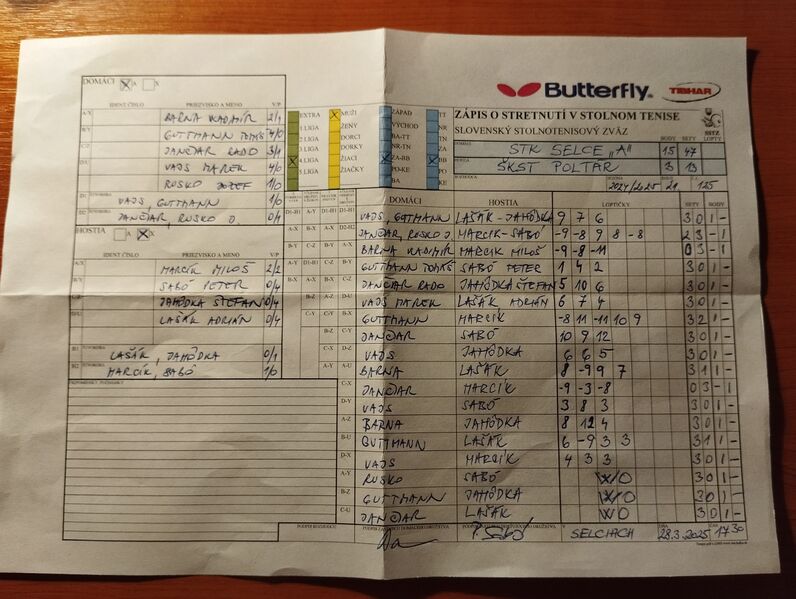 Butterfly
TIBHAR
DOMÁCI A X
ZÁPIS O STRETNUTÍ V STOLNOM TENISE
SLOVENSKÝ STOLNOTENISOVÝ ZVÄZ
SSTZ
DOMÁCI STK SELCE „A" BODY 15 SETY 47 LOPTY
ŠKST POLTÁR 3 13
2024/2025 21 125
IDENT. ČÍSLO PRIEZVISKO A MENO V/P
A/X BARNA VLADIMÍR 2/1
B/Y GUTTMANN TOMÁŠ 4/0
C/Z JANČIAR RADO 3/1
D/U VAJS MAREK 4/0
RUSKO JOZEF 1/0
VAJS, GUTTMANN 1/0
JANČIAR, RUSKO J. 0/1
EXTRA X MUŽI ZÁPAD TT
1 LIGA ŽENY VÝCHOD NR
2 LIGA DORCI BA-TT
3 LIGA DORKY
X 4 LIGA ŽIACI X ZA-BB X BB
5 LIGA ŽIAČKY PO-KE
BA KE
HOSTIA X
IDENT. ČÍSLO PRIEZVISKO A MENO V/P
MARCÍK MILOŠ 2/2
SABÓ PETER 0/4
JAHÔDKA ŠTEFAN 0/4
LAŠÁK ADRIÁN 0/4
LAŠÁK, JAHÔDKA 0/1
MARCÍK, SABÓ 1/0
DOMÁCI HOSTIA LOPTIČKY SETY BODY
VAJS, GUTTMANN LAŠÁK - JAHÔDKA 9 7 6 3 0 1 -
JANČIAR, RUSKO J. MARCÍK - SABÓ -9 -8 9 8 -8 2 3 - 1
BARNA VLADIMÍR MARCÍK MILOŠ -9 -8 -11 0 3 - 1
GUTTMANN TOMÁŠ SABÓ PETER 1 4 2 3 0 1 -
JANČIAR RADO JAHÔDKA ŠTEFAN 5 10 6 3 0 1 -
VAJS MAREK LAŠÁK ADRIÁN 6 7 4 3 0 1 -
GUTTMANN MARCÍK -8 11 -11 10 9 3 2 1 -
JANČIAR SABÓ 10 9 12 3 0 1 -
VAJS JAHÔDKA 6 6 5 3 0 1 -
BARNA LAŠÁK 8 -9 9 7 3 1 1 -
C-X JANČIAR MARCÍK -9 -3 -8 0 3 - 1
D-Y VAJS SABÓ 3 8 3 3 0 1 -
A-Z BARNA JAHÔDKA 8 12 4 3 0 1 -
B-U GUTTMANN LAŠÁK 6 -9 3 3 3 1 1 -
D-X VAJS MARCÍK 4 3 3 3 0 1 -
A-Y RUSKO SABÓ W/O 3 0 1 -
B-Z GUTTMANN JAHÔDKA W/O 3 0 1 -
C-U JANČIAR LAŠÁK W/O 3 0 1 -
PODPIS ROZHODCU
V SELCIACH 28.3.2025 17 30